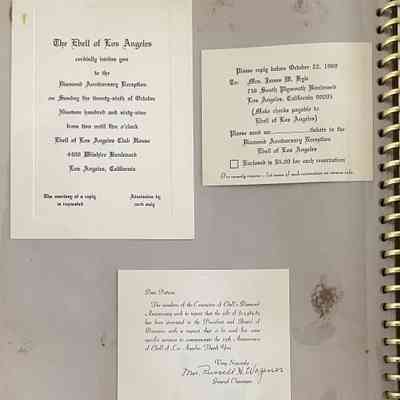 The Ebell of Los Angeles
cordially invites you
to the
Diamond Anniversary Reception
on Sunday the twenty-sixth of October
Nineteen hundred and sixty-nine
from two until five o'clock
Ebell of Los Angeles Club House
4400 Wilshire Boulevard
Los Angeles, California
The courtesy of a reply
is requested
Admission by
card only
Please reply before October 22, 1969
To: Mrs. James W.
710 South Plymouth Boulevard
Los Angeles, California 90005
(Make checks payable to
Ebell of Los Angeles)
Please send me tickets to the
Diamond Anniversary Reception
Ebell of Los Angeles
Enclosed is $5.00 for each reservation
Dear Patron:
The members of the Committee of Ebell's Diamond
Anniversary wish to report that the gift of
has been presented to the President and Board of
Directors with a request that it be used for some
specific purpose to commemorate the 75th Anniversary
of Ebell of Los Angeles. Thank You.
Very Sincerely
Mrs. Russell H. Wagener
General Chairman